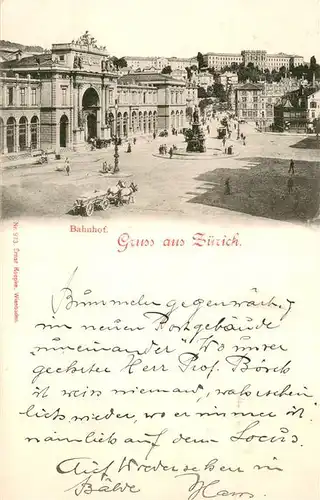 Bahnhof.
Gruss aus Zürich.
No. 913. Ernst Kuepfer, Wiesbaden.
Bummeln gegenwärtig
im neuen Postgebäude
"umeinander" Wo unser
geehrter Herr Prof.
ist weiss niemand, wahrschein
lich wieder, wo er immer ist
nämlich auf dem Locus.
Auf Wiedersehen in
Bälde Hans